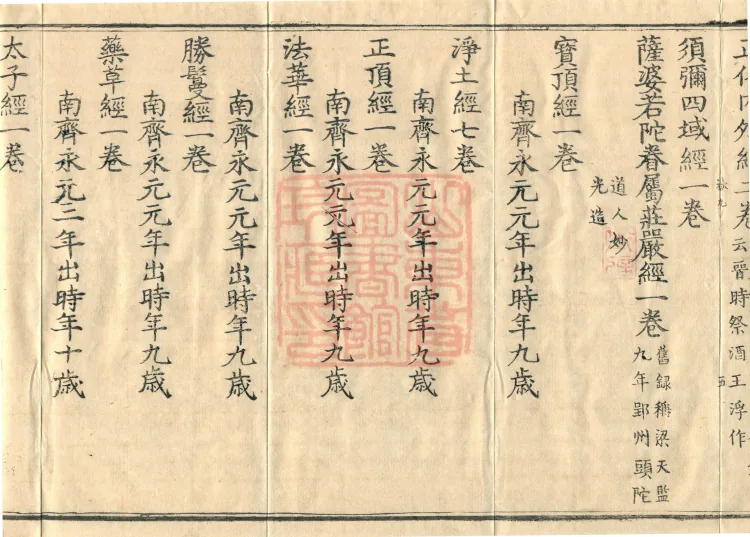 云晉時祭酒王浮作
須彌四域經一卷
薩婆若陀眷屬莊嚴經一卷
舊録稱梁天監
九年郢州頭陀
道人妙
光造
寶頂經一卷
南齊永元元年出時年九歳
淨土經七卷
南齊永元元年出時年九歳
正頂經一卷
南齊永元元年出時年九歳
法華經一卷
南齊永元元年出時年九歳
勝鬘經一卷
南齊永元元年出時年九歳
藥草經一卷
南齊永元三年出時年十歳
太子經一卷
山東省
圖書館
珍藏印